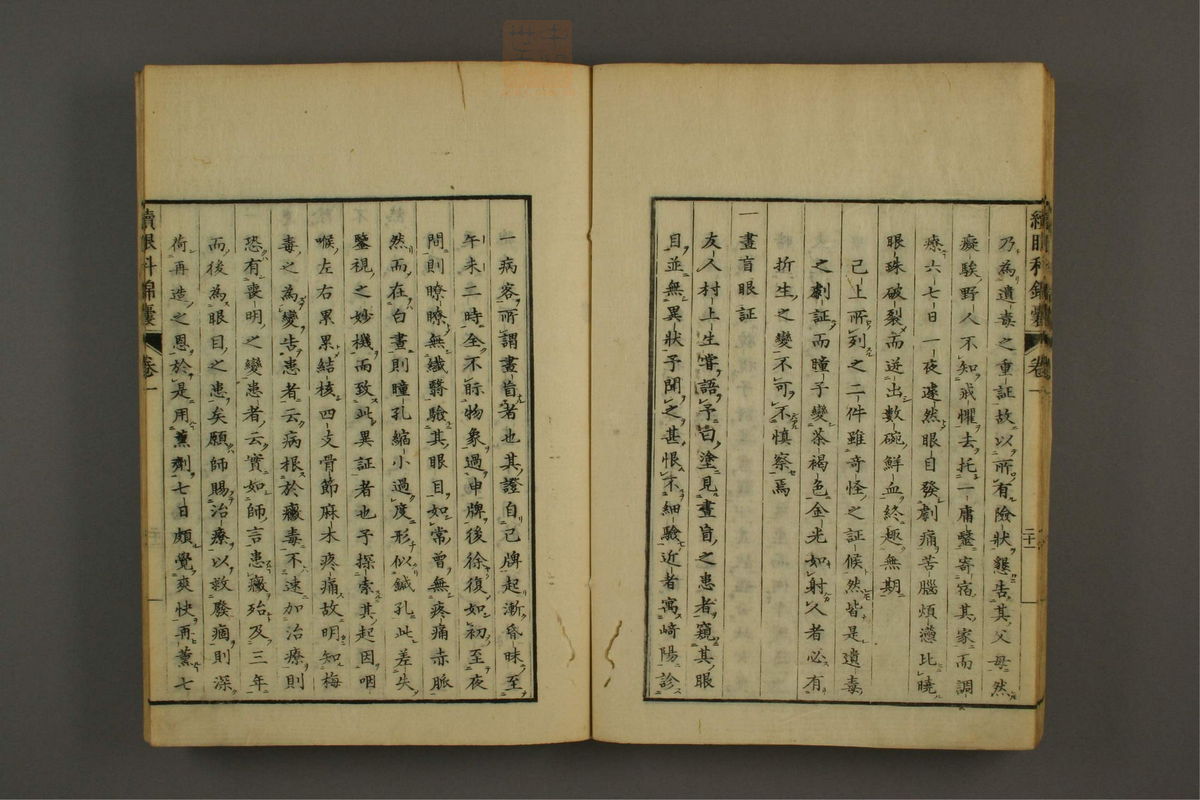 乃為遺毒之重証故以所有險狀懇告其父母然
癡騃野人不知戒懼去托一庸醫寄宿其家而調
療六七日一夜遽然眼目發劇痛苦腦煩懣比曉
眼珠破裂而迸出數碗鮮血終趣無期
已上所列之二件雖奇怪之証候然皆是遺毒
之劇証而瞳子變茶褐色金光如射人者必有
折生之變不可不慎察焉
一晝盲眼証
友人村上生嘗語予曰塗見晝盲之患者窺其眼
目並無異狀予聞之甚恨不細驗近者寓崎陽診
續眼科錦囊 卷一
一病客所謂晝盲者也其證自己牌起漸昏昧至
午未二時全不眎物象過申牌後徐復如初至夜
間則瞭瞭無纖翳驗其眼目如常曾無疼痛赤脈
然而在白晝則瞳孔縮小過度形似鍼孔此差失
鑒視之妙機而致此異証者也予探索其起因咽
喉左右累累結核四支骨節麻木疼痛故明知梅
毒之為變告患者云病根於癥毒不速加治療則
恐有喪明之變患者云實如師言患癥殆及三年
而後為眼目之患矣願師賜治療以救廢痼則深
荷再造之恩於是用薰劑七日頗覺爽快再薰七
續眼科錦囊 卷一